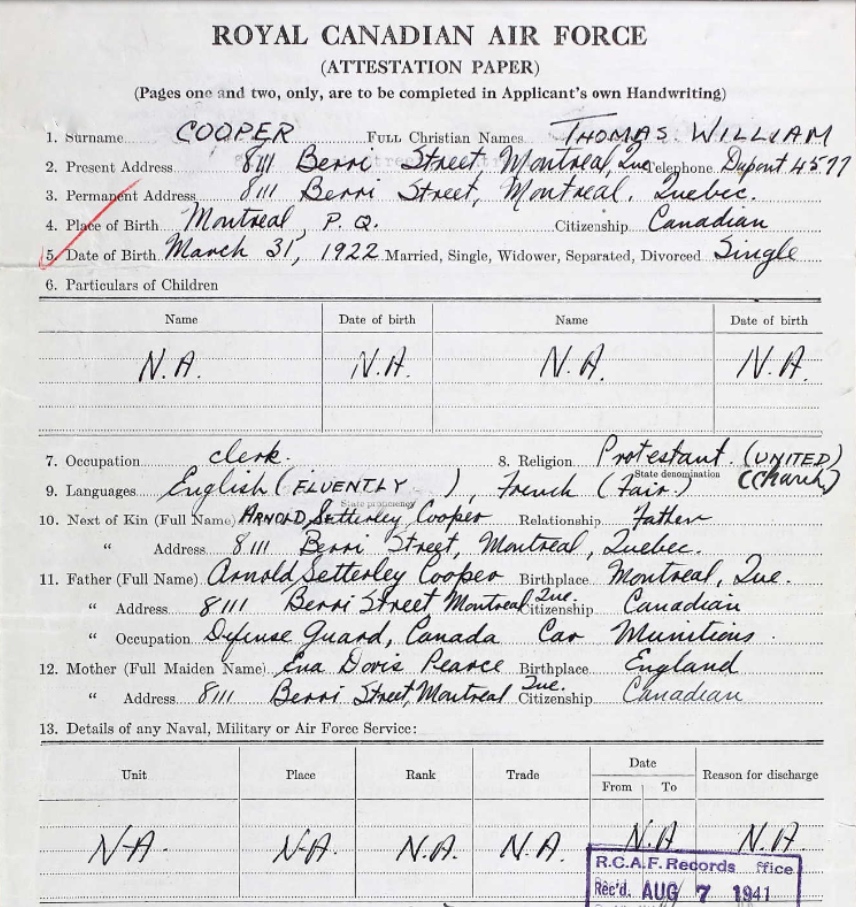 ROYAL CANADIAN AIR FORCE
(ATTESTATION PAPER)
(Pages one and two, only, are to be completed in Applicant's own Handwriting)
1. Surname COOPER FULL Christian Names THOMAS. WILLIAM
2. Present Address 8111 Berri Street, Montreal, Que Telephone Dupont 4577
3. Permanent Address 8111 Berri Street, Montreal, Quebec.
4. Place of Birth Montreal, P.Q. Citizenship Canadian
5. Date of Birth March 31, 1922 Married, Single, Widower, Separated, Divorced Single
6. Particulars of Children
Name Date of birth Name Date of birth
N.A. N.A. N.A. N.A.
7. Occupation clerk. 8. Religion Protestant. (UNITED)
State denomination (Church)
9. Languages English (FLUENTLY ), French (Fair.)
State proficiency
10. Next of Kin (Full Name) ARNOLD, Setterley Cooper Relationship Father
" Address 8111 Berri Street, Montreal, Quebec.
11. Father (Full Name) Arnold Setterley Cooper Birthplace Montreal, Que.
" Address 8111 Berri Street Montreal Que. Citizenship Canadian
" Occupation Defense Guard, Canada Car Munitions.
12. Mother (Full Maiden Name) Ena Doris Pearce Birthplace England
" Address 8111 Berri Street, Montreal Que. Citizenship Canadian
13. Details of any Naval, Military or Air Force Service:
Unit Place Rank Trade Date Reason for discharge
From To
N-A. N-A. N.A. N.A. N.A N.A.
R.C.A.F. Records ffice
Rec'd. AUG 7 1941